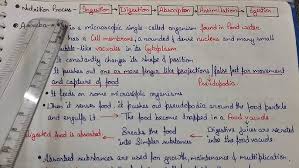 • Nutrition Process → Ingestion → Digestion → Absorption → Assimilation → Egestion
• Amoeba → is a microscopic single-celled organism found in Pond water
has a Cell membrane, a rounded & dense nucleus and many small
bubble-like vacuoles in its cytoplasm
It constantly changes its shape & position
It pushes out one or more finger like projections / false feet for movement
and capture of food Pseudopodia
It feeds on some microscopic organisms
When it senses food, it pushes out pseudopodia around the food particle
and engulfs it → The food become trapped in a food vacuole
Digested food is absorbed ← Breaks the food into Simpler substances ← Digestive juices are secreted into the food vacuole
• Absorbed substances are used for growth, maintenance & multiplication